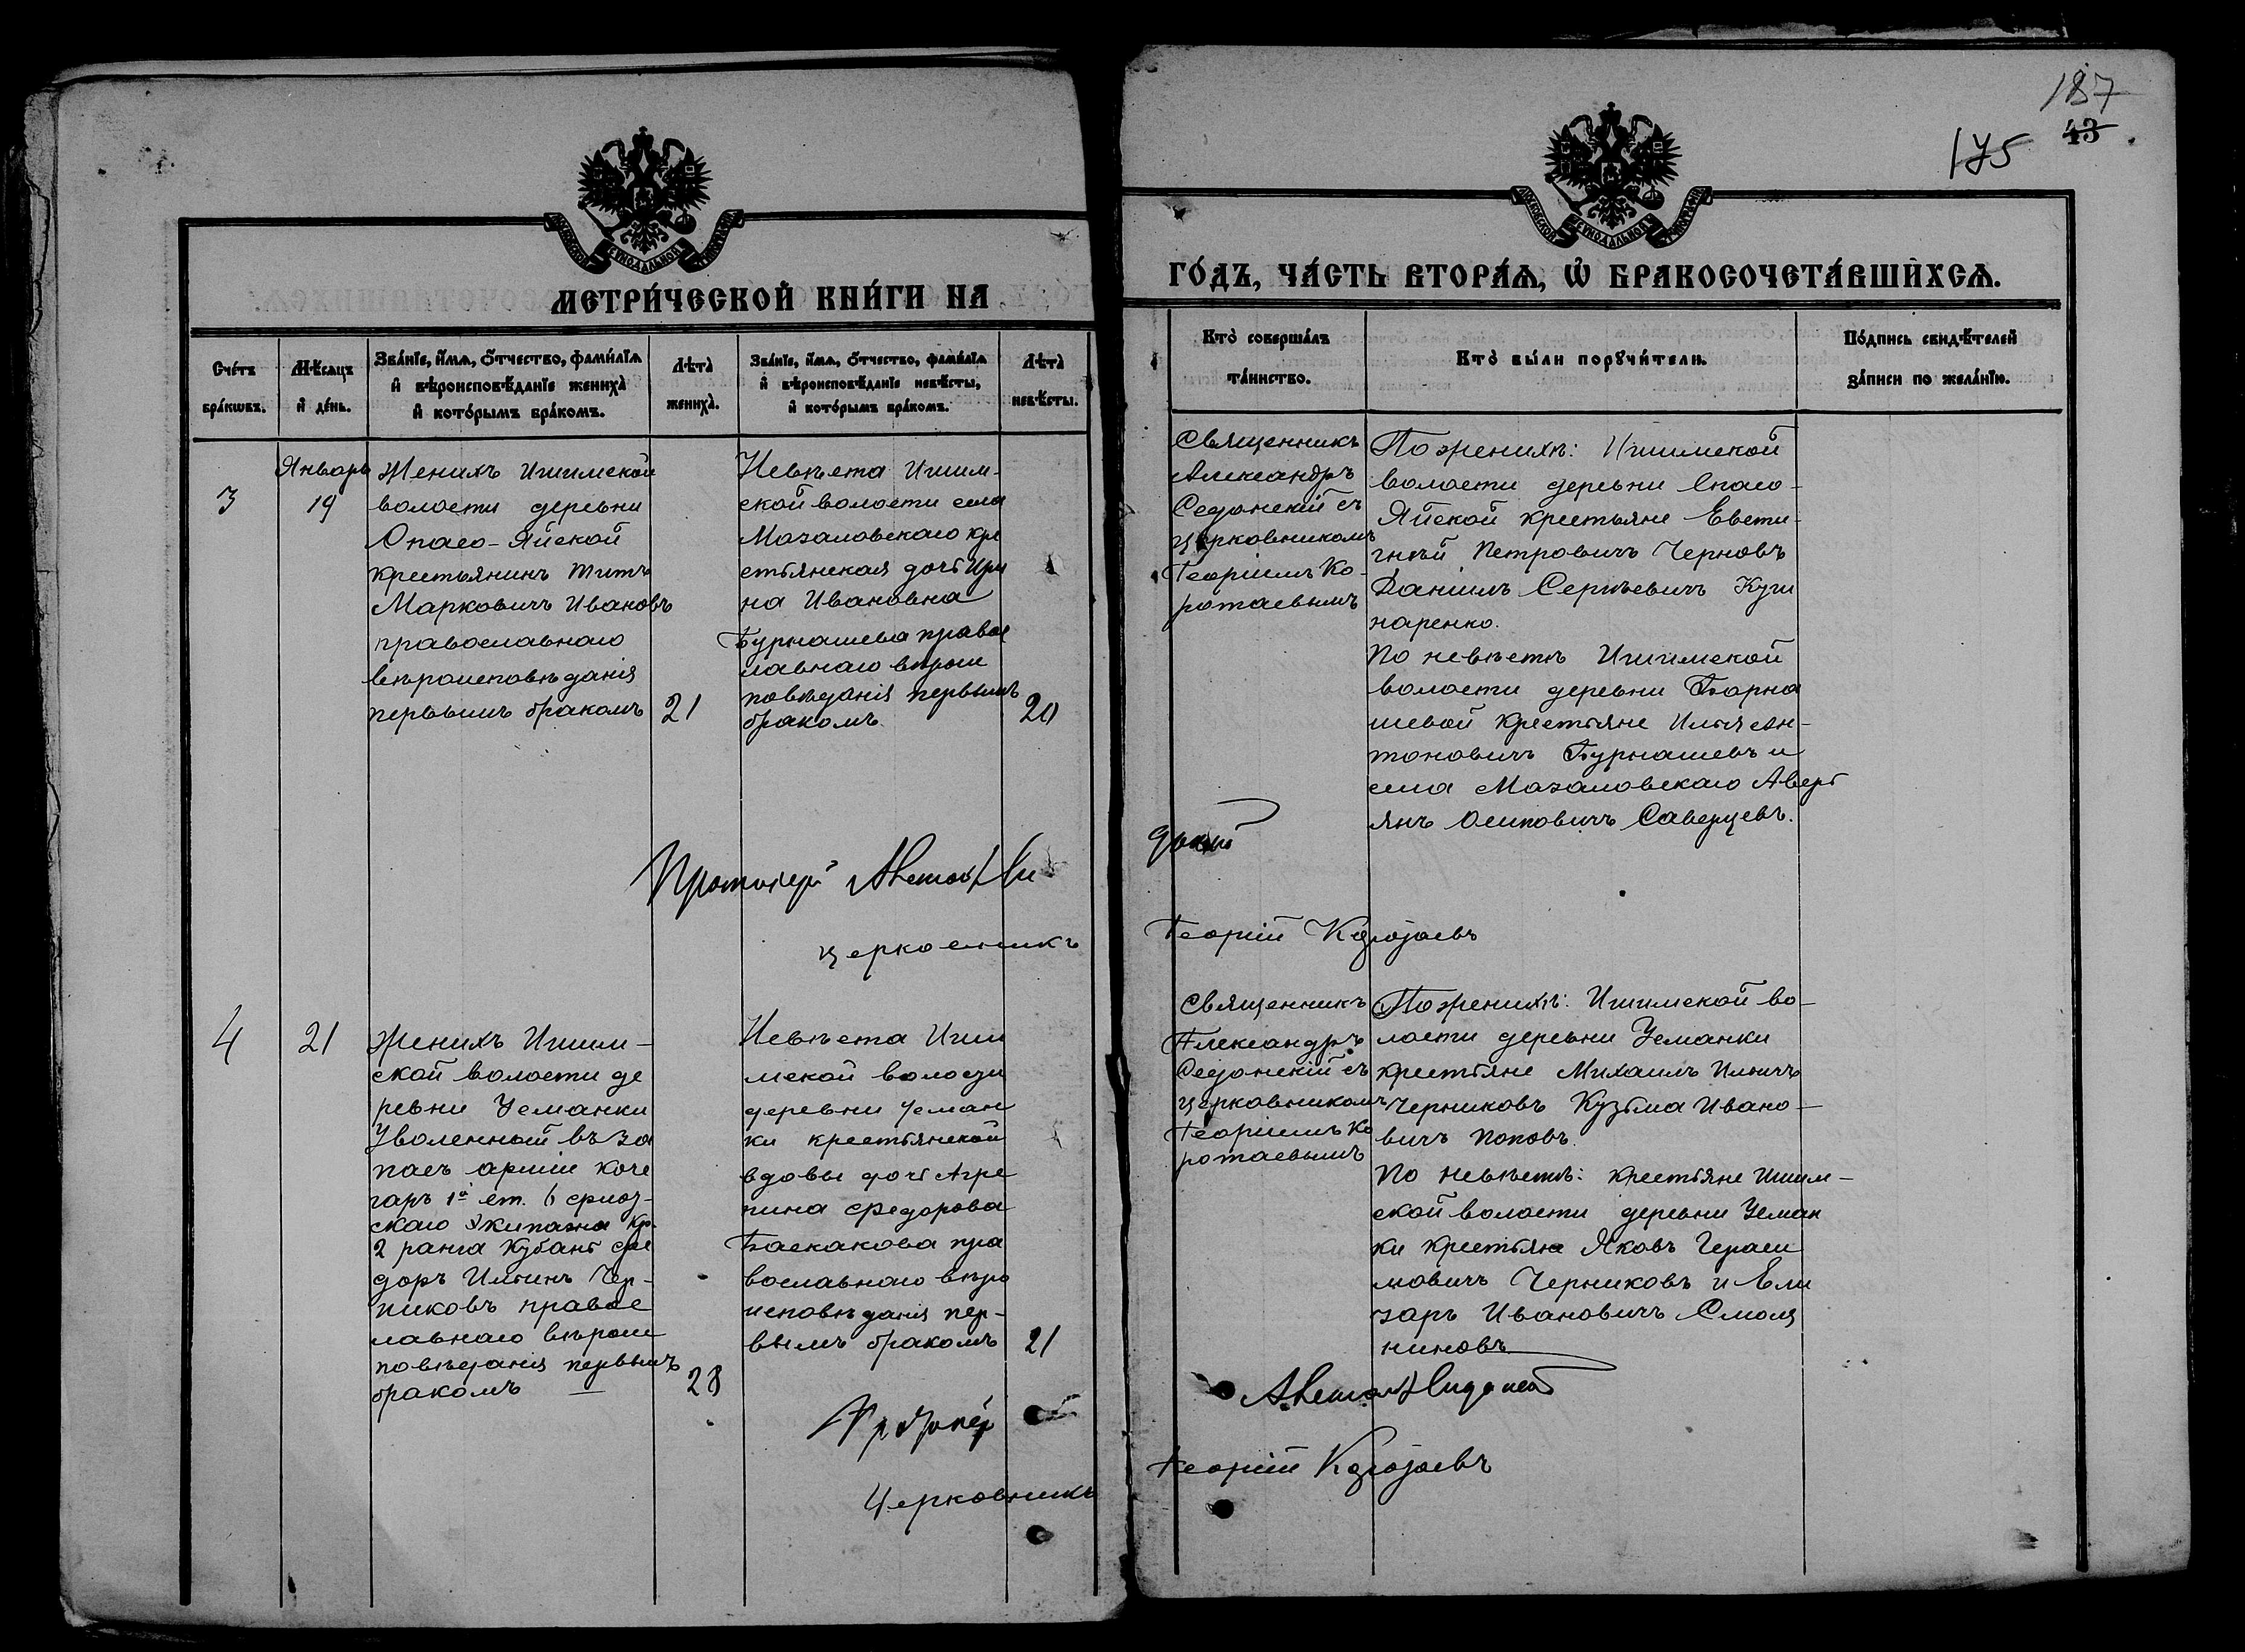 187
43
175
МЕТРИ́ЧЕСКОЙ КНИ́ГИ НА
Сче́тъ бра́кѡвъ.
Мѣ́сѧцъ и҆ де́нь.
Зва́нїе, и҆́мѧ, ѻ҆́тчество, фами́лїѧ
и҆ вѣроисповѣ́данїе женихà
и҆ кото́рымъ бра́комъ.
Лѣтà женихà.
Зва́нїе, и҆́мѧ, ѻ҆́тчество, фами́лїѧ
и҆ вѣроисповѣ́данїе невѣ́сты,
и҆ кото́рымъ бра́комъ.
Лѣтà невѣ́сты.
3
Январь
19
Женихъ Ишимской
волости деревни
Спасо-Яйской
крестьянинъ Титъ
Марковичъ Ивановъ
православнаго
вѣроисповѣданія
первымъ бракомъ
21
Невѣста Ишим-
ской волости села
Мазаловскаго кре
стьянская дочь Ири
на Ивановна
Бурнашева правос
лавнаго вѣрои
повѣданія первымъ
бракомъ
20
Протоіерей
церковникъ
4
21
Женихъ Ишим-
ской волости де
ревни Усманки
Уволенный въ за
пасъ арміи коче
гаръ 1й ст. 6 флот-
скаго Экипажа Кр.
2 ранга Кубань Фе
доръ Ильинъ Чер-
никовъ правос
лавнаго вѣроис
повѣданія первымъ
бракомъ —
28
Невѣста Иши
мской волости
деревни Усман
ки крестьянской
вдовы дочь Агре
пина Федорова
Баскакова пра
вославнаго вѣро
исповѣданія пер-
вымъ бракомъ
21
Церковникъ
ГО́ДЪ, ЧА́СТЬ ВТОРА́Ѧ, Ѽ БРАКОСОЧЕТА́ВШИХСѦ.
Кто̀ соверша́лъ
та́инство.
Кто̀ бы́ли порꙋчи́тели.
По́дпись свидѣ́телей
за́писи по жела́нїю.
Священникъ
Александръ
Сидонскій съ
церковникомъ
Георгіемъ Ко-
ротаевымъ
По женихѣ: Ишимской
волости деревни Спасо-
Яйской крестьяне Евсти-
гнѣй Петровичъ Черновъ
Даніилъ Сергѣевичъ Куш
наренко.
По невѣстѣ Ишимской
волости деревни Барна
шевой крестьяне Илья Ан-
тоновичъ Бурнашевъ и
села Мазаловскаго Аверь
янъ Осиповичъ Саверцевъ.
Георгій Коротаевъ
Священникъ
Александръ
Сидонскій съ
церковникомъ
Георгіемъ Ко
ротаевымъ
По женихѣ: Ишимской во-
лости деревни Усманки
крестьяне Михаилъ Ильичъ
Черниковъ Кузьма Ивано-
вичъ Поповъ.
По невѣстѣ: крестьяне Ишим-
ской волости деревни Усман
ки крестьяне Яковъ Гераси
мовичъ Черниковъ и Ели
заръ Ивановичъ Смоля
ниновъ
Георгій Коротаевъ